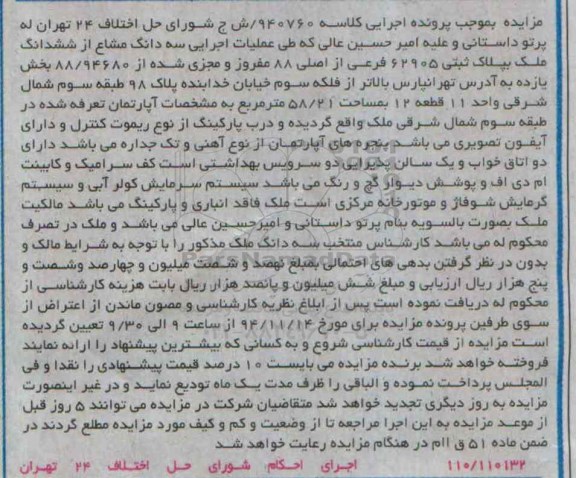 مزایده بموجب پرونده اجرایی کلاسه ۹۴۰۷۶۰/ش ج شورای حل اختلاف ۲۴ تهران له
پرتو داستانی و علیه امیر حسین عالی که طی عملیات اجرایی سه دانگ مشاع از ششدانگ
ملک بپلاک ثبتی ۶۲۹۰۵ فرعی از اصلی ۸۸ مفروز و مجزی شده از ۸۸/۹۴۶۸۰ بخش
یازده به آدرس تهرانپارس بالاتر از فلکه سوم خیابان خدابنده پلاک ۹۸ طبقه سوم شمال
شرقی واحد ۱۱ قطعه ۱۲ بمساحت ۵۸/۲۱ مترمربع به مشخصات آپارتمان تعرفه شده در
طبقه سوم شمال شرقی ملک واقع گردیده و درب پارکینگ از نوع ریموت کنترل و دارای
آیفون تصویری می باشد پنجره های آپارتمان از نوع آهنی و تک جداره می باشد دارای
دو اتاق خواب و یک سالن پذیرایی دو سرویس بهداشتی است کف سرامیک و کابینت
ام دی اف و پوشش دیوار گچ و رنگ می باشد سیستم سرمایش کولر آبی و سیستم
گرمایش شوفاژ و موتورخانه مرکزی است ملک فاقد انباری و پارکینگ می باشد مالکیت
ملک بصورت بالسویه بنام پرتو داستانی و امیرحسین عالی می باشد و ملک در تصرف
محکوم له می باشد کارشناس منتخب سه دانگ ملک مذکور را با توجه به شرایط مالک و
بدون در نظر گرفتن بدهی های احتمالی بمبلغ نهصد و شصت میلیون و چهارصد وشصت و
پنج هزار ریال ارزیابی و مبلغ شش میلیون و پانصد هزار ریال بابت هزینه کارشناسی از
محکوم له دریافت نموده است پس از ابلاغ نظریه کارشناسی و مصون ماندن از اعتراض از
سوی طرفین پرونده مزایده برای مورخ ۹۴/۱۱/۱۴ از ساعت ۹ الی ۹/۳۰ تعیین گردیده
است مزایده از قیمت کارشناسی شروع و به کسانی که بیشترین پیشنهاد را ارائه نمایند
فروخته خواهد شد برنده مزایده می بایست ۱۰ درصد قیمت پیشنهادی را نقدا و فی
المجلس پرداخت نموده و الباقی را ظرف مدت یک ماه تودیع نماید و در غیر اینصورت
مزایده به روز دیگری تجدید خواهد شد متقاضیان شرکت در مزایده می توانند ۵ روز قبل
از موعد مزایده به این اجرا مراجعه تا از وضعیت و کم و کیف مورد مزایده مطلع گردند در
ضمن ماده ۵۱ ق اام در هنگام مزایده رعایت خواهد شد
۱۱۰/۱۱۰۱۳۲ اجرای احکام شورای حل اختلاف ۲۴ تهران